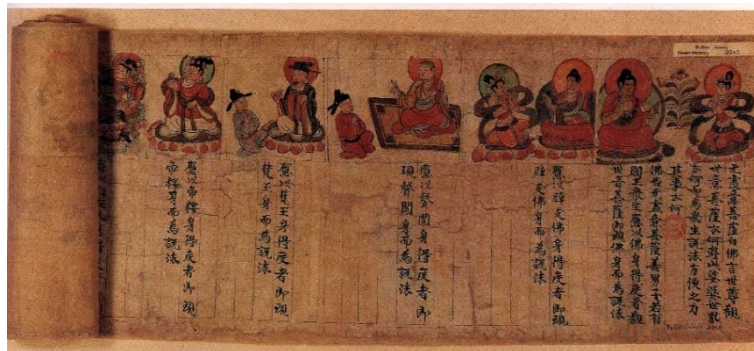 无盡意菩薩白佛言世尊觀
世音菩薩云何遊此娑婆世界
云何而為衆生說法方便之力
其事云何
佛告无盡意菩薩善男子若有
國土衆生應以佛身得度者觀
世音菩薩即現佛身而為說法
應以辟支佛身得度者即現
辟支佛身而為說法
應以聲聞身得度者即
現聲聞身而為說法
應以梵王身得度者即現
梵王身而為說法
應以帝釋身得度者即現
帝釋身而為說法